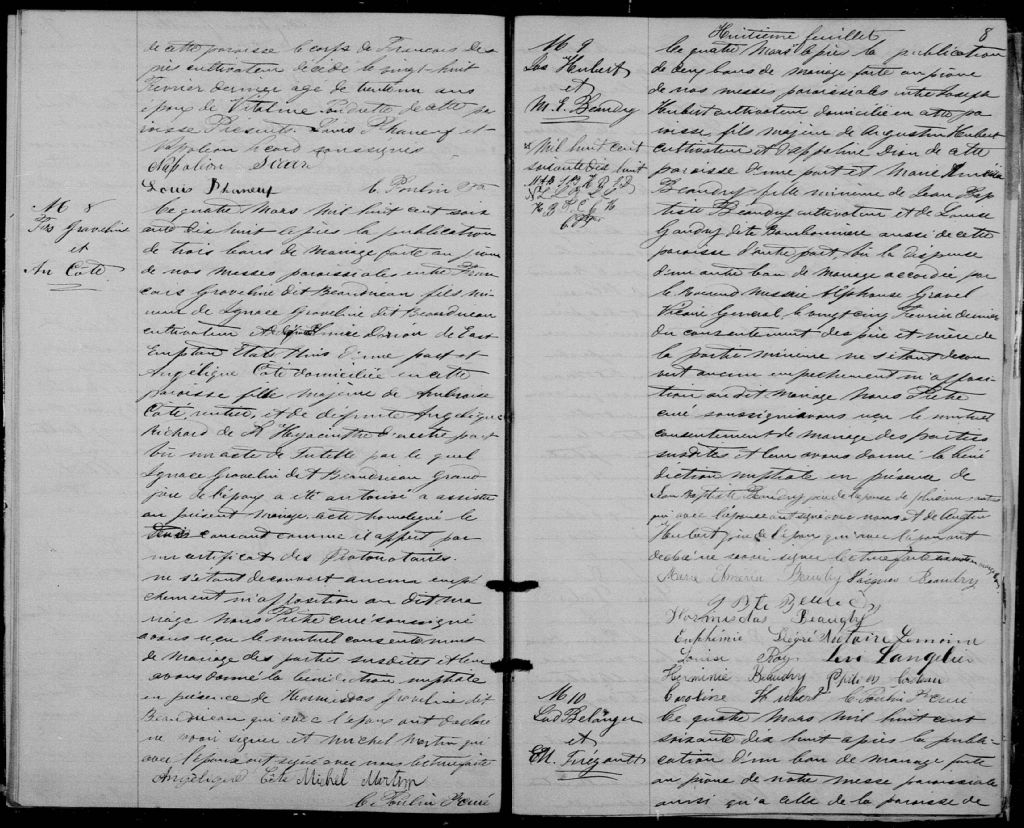 de cette paroisse le corps de Francois
cultivateur décédé le vingt huit
Fevrier dernier age de trente un ans
époux de Vitaline Audette de cette pa
roisse Présents Louis Phaneuf et
Napoléon Sicard soussignés
Napoléon Sicar
Louis Phaneuf C. Poulin
M 8
Frs Graveline
et
An Côté
Le quatre Mars mil huit cent soix
ante dix huit après la publication
de trois bans de mariage faite au prône
de nos messes paroissiales entre Fran
cois Graveline dit Beaudreau fils mi
neur de Ignace Graveline dit Beaudreau
cultivateur et Dorion de East
Etats Unis d'une part et
Angélique Côté domiciliée en cette
paroisse fille majeure de Ambroise
Côté rentier et de défunte Angélique
Richard de St Hyacinthe d'autre part
Vu un acte de tutelle par le quel
Ignace Gravelin dit Beaudreau grand
père de l'époux a été autorisé a assister
au présent mariage acte homologué le
courant comme il appert par
un certificat des Protonotaires
ne s'étant decouvert aucun empê
chement ni opposition au dit ma
riage Nous Prêtre curé soussigné
avons reçu le mutuel consentement
de mariage des parties susdites et leur
avons donné la bénédiction nuptiale
en présence de Hermisdas Graveline dit
Beaudreau qui avec l'époux ont déclaré
ne savoir signer et Michel Martin qui
avec l'épouse ont signé avec nous lecture faite
Angelique Côté Michel Martin
C. Poulin Ptre curé
Huitième feuillet 8
M 9
Jos Hubert
et
M. E. Beaudry
x Mil huit cent
soixante dix huit
Le quatre Mars x après la publication
de deux bans de mariage faite au prône
de nos messes paroissiales entre Joseph
Hubert cultivateur domicilié en cette pa
roisse fils majeur de Augustin Hubert
cultivateur et d'Appoline Dion de cette
paroisse d'une part et Marie
Beaudry fille mineure de Jean Bap
tiste Beaudry cultivateur et de Louise
Gaudry dite Bourbonniere aussi de cette
paroisse d'autre part, Vu la dispense
d'un autre ban de mariage accordée par
le Reverend Messire Alphonse Gravel
Vicaire General, le vingt cinq Fevrier dernier
Du consentement des père et mère de
la partie mineure ne s'étant decou
vert aucun empêchement ni opposi
tion au dit mariage Nous Prêtre
curé soussigné avons reçu le mutuel
consentement de mariage des parties
susdites et leur avons donné la béné
diction nuptiale en présence de
Jean Baptiste Beaudry père de l'épouse de plusieurs autres
qui avec l'épouse ont signé avec nous et de Augustin
Hubert père de l'époux qui avec l'époux ont
declaré ne savoir signer lecture faite
Marie Emeria Beaudry Jacques Beaudry
J Bte Beaudry
Hormisdas Beaudry
Euphémie Nectaire Lemoine
Louise Roy Levi Langelier
Herminie Beaudry
Caroline Hubert C. Poulin Ptre curé
M 10
Lud Belanger
et
EM.
Le quatre Mars mil huit cent
soixante dix huit après la publi-
cation d'un ban de mariage faite
au prône de notre messe paroissiale
ainsi qu'a celle de la paroisse de